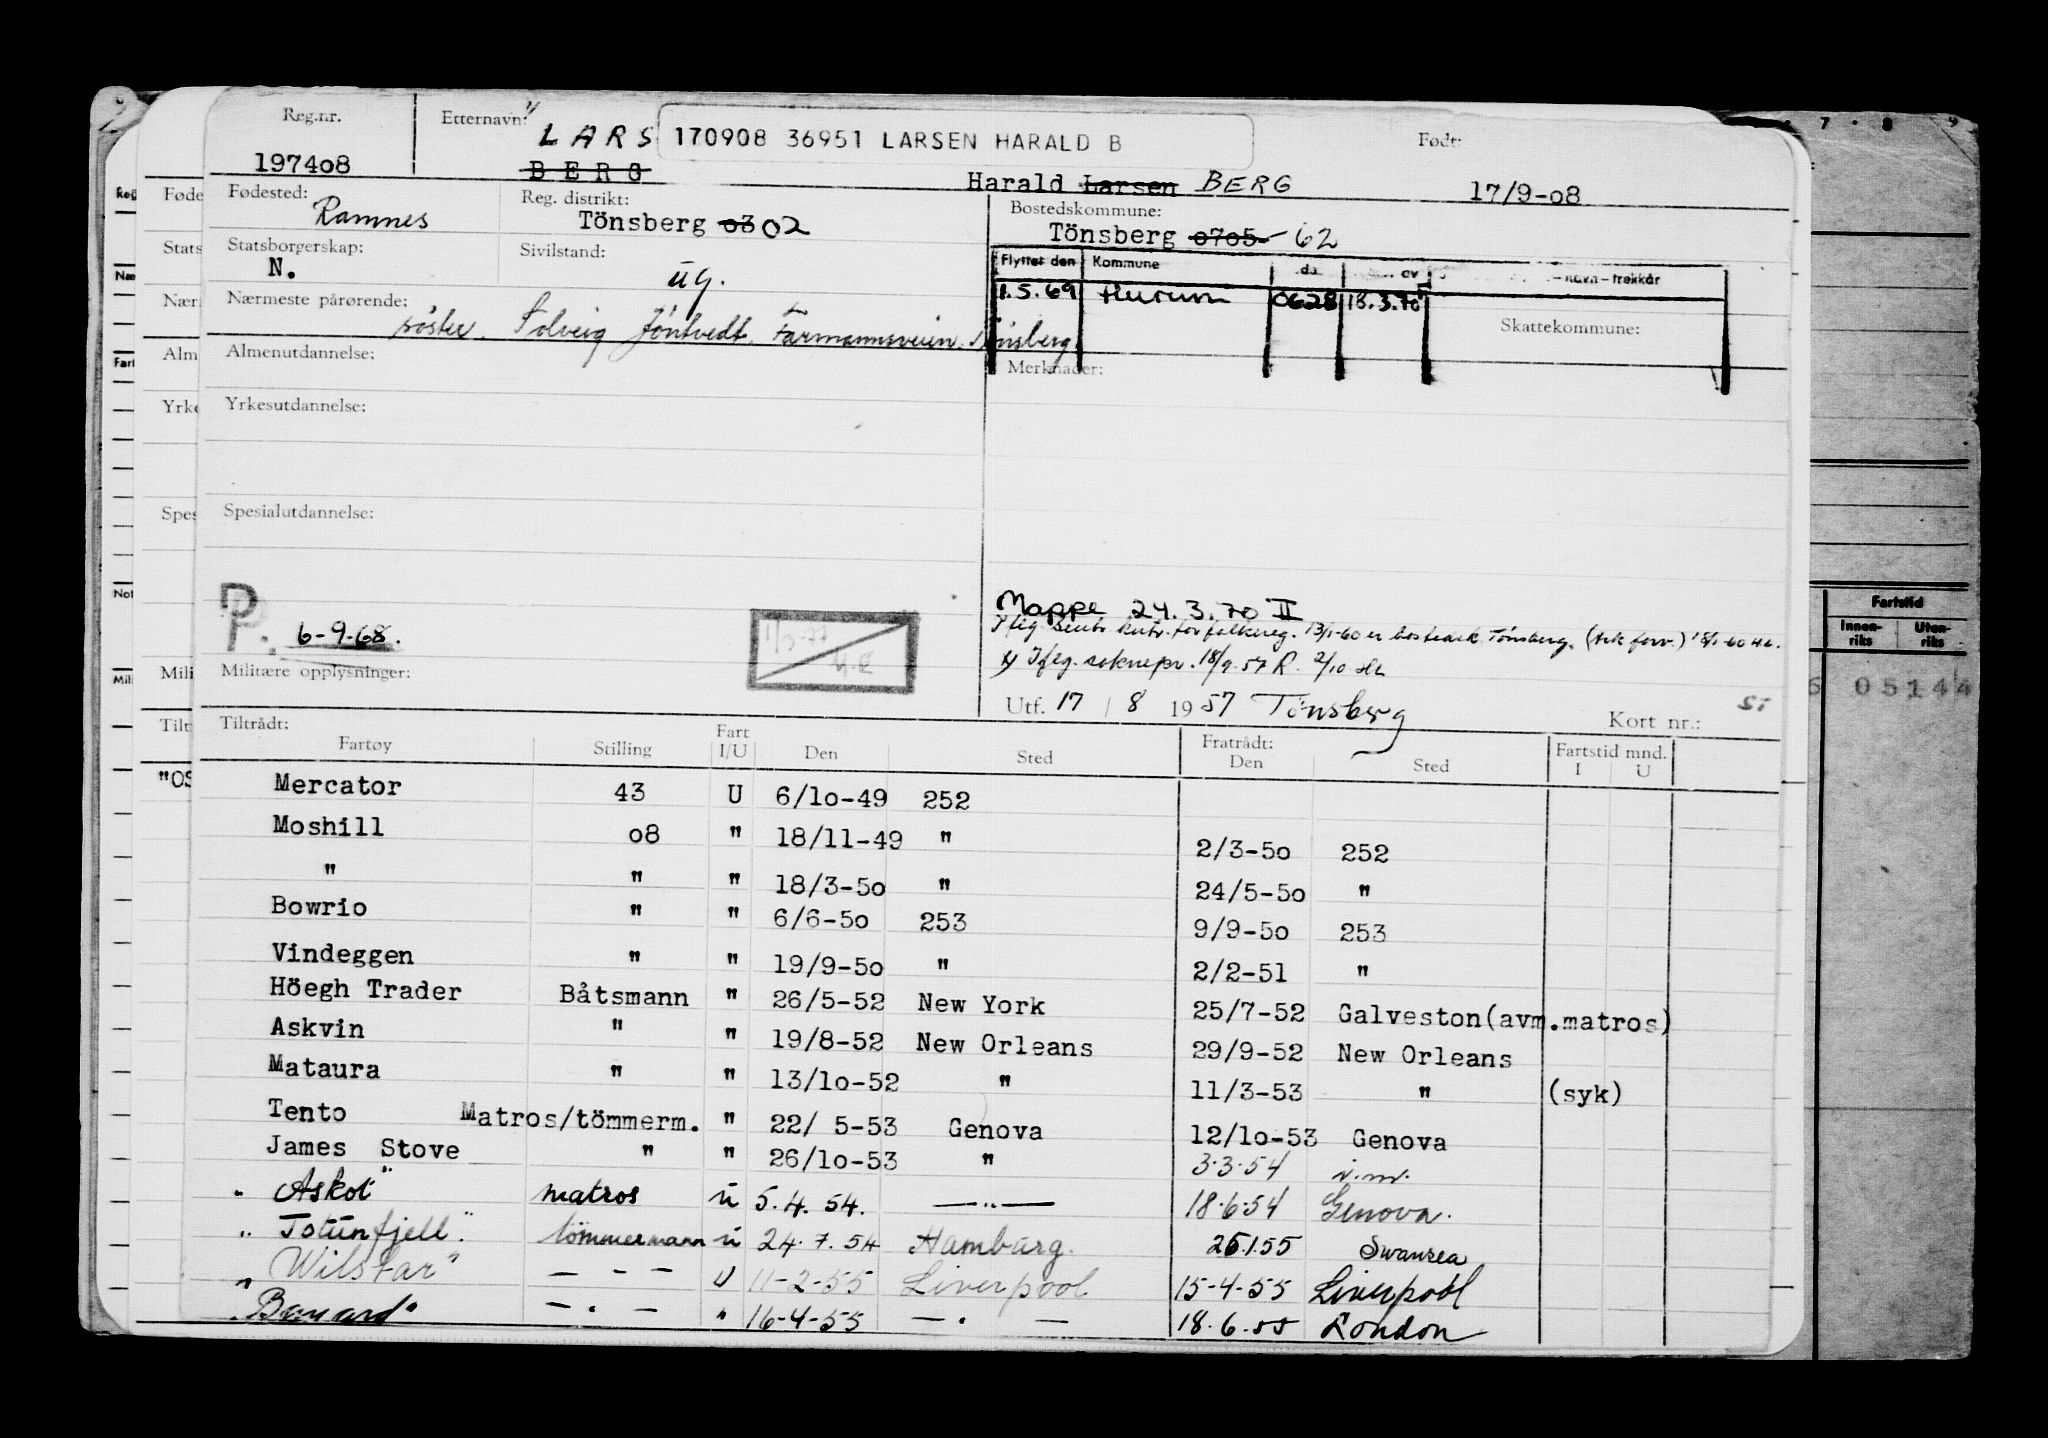 Reg.nr. Etternavn: 1) Født:
LARS 170908 36951 LARSEN HARALD B
197408 BERG Harald Larsen BERG 17/9-08
Fødested: Ramnes Reg. distrikt: Tönsberg 03 02 Bostedskommune: Tönsberg 0705 - 62
Statsborgerskap: N. Sivilstand: ug.
Flyttet den Kommune
1.5.69 Hurum 0628 18.3.70
- navn - trekkår
Skattekommune:
Nærmeste pårørende: söster. Solveig Jöntvedt. Farmannsveien. Tönsberg.
Almenutdannelse: Merknader:
Yrkesutdannelse:
Spesialutdannelse:
P. 6-9-68.
Mappe 24.3.70 II
Iflg. sentr. kntr. for folkereg. 13/1-60 er bostedsk Tönsberg.
x) Ifflg. soknepr. 18/9.57 R. 2/10
Militære opplysninger:
Utf. 17 / 8 1957 Tönsberg
Kort nr.:
Tiltrådt: Fratrådt:
Fartøy Stilling Fart I/U Den Sted Den Sted Fartstid mnd. I U
Mercator 43 U 6/10-49 252
Moshill 08 " 18/11-49 " 2/3-50 252
" " " 18/3-50 " 24/5-50 "
Bowrio " " 6/6-50 253 9/9-50 253
Vindeggen " " 19/9-50 " 2/2-51 "
Höegh Trader Båtsmann " 26/5-52 New York 25/7-52 Galveston(avm.matros)
Askvin " " 19/8-52 New Orleans 29/9-52 New Orleans
Mataura " " 13/10-52 " 11/3-53 " (syk)
Tento Matros/tömmerm. " 22/ 5-53 Genova 12/10-53 Genova
James Stove " " 26/10-53 " 3.3.54
"Askot" matros u 5.4.54. — " — 18.6.54 Genova.
"Jotunfjell" tömmermann u 24.7.54 Hamburg. 25.1.55 Swansea
"Wilstar" — - — U 11-2-55 Liverpool 15-4-55 Liverpool
"Banard" — . — " 16-4-55 — . — 18.6.55 London
Fartstid
Innen-riks Uten-riks
05144